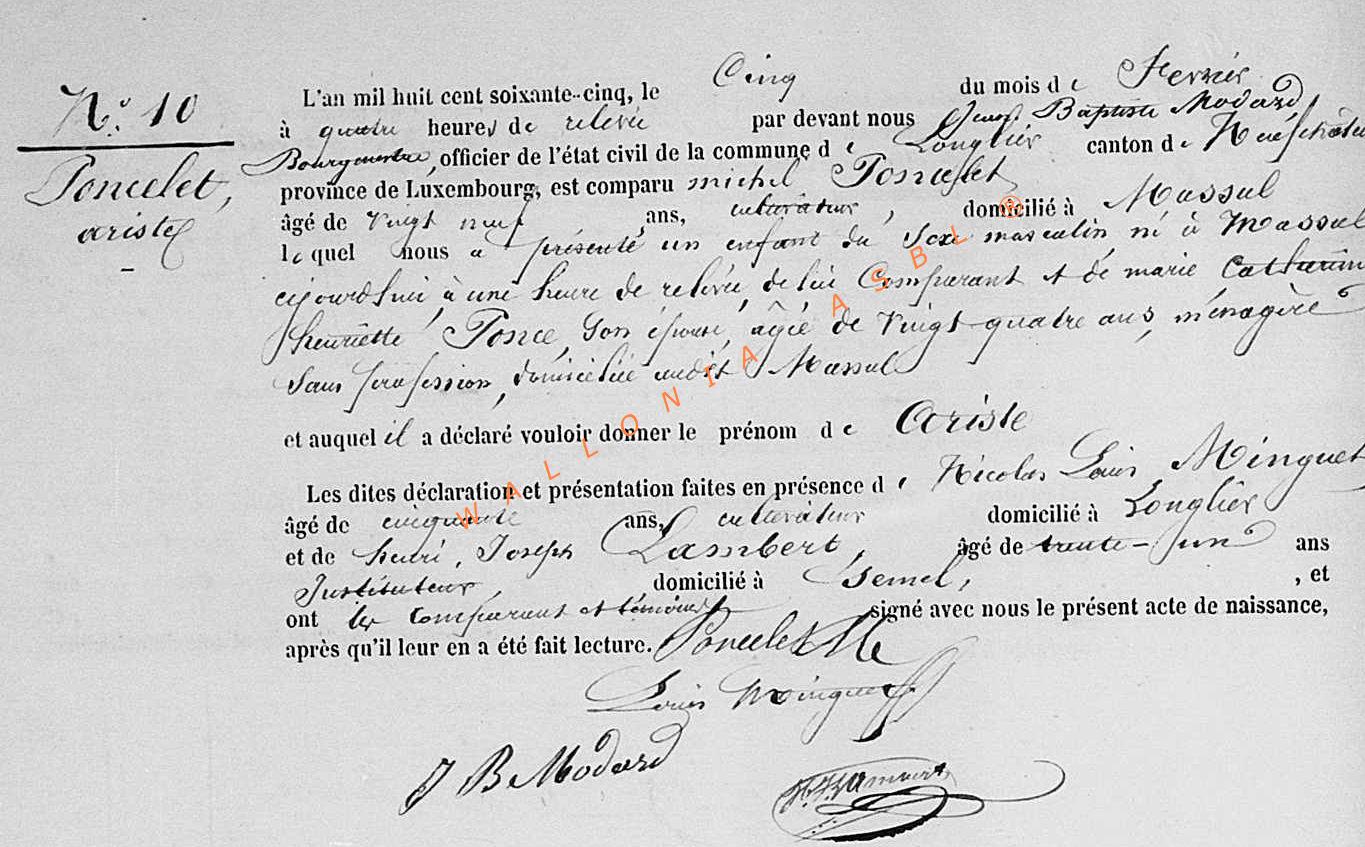 N.o 10
Poncelet,
ariste
L'an mil huit cent soixante-cinq, le Cinq du mois de Fevrier
à quatre heures de relevée par devant nous Jean Baptiste Modard
Bourgmestre, officier de l'état civil de la commune de Longlier canton de Neufchâteau
province de Luxembourg, est comparu michel Poncelet
âgé de vingt neuf ans, cultivateur, domicilié à Massul
lequel nous a présenté un enfant du sexe masculin né à Massul
cejourd'hui à une heure de relevée, de lui Comparant et de marie Catherine
henriette Ponce, son épouse, âgée de vingt-quatre ans, ménagère
sans profession, domiciliée audit Massul
et auquel il a déclaré vouloir donner le prénom de Ariste
Les dites déclaration et présentation faites en présence de Nicolas Louis Minguet,
âgé de cinquante ans, cultivateur domicilié à Longlier
et de henri, Joseph Lambert, âgé de trente-un ans
Instituteur, domicilié à Semel, , et
ont les comparant et témoins signé avec nous le présent acte de naissance,
après qu'il leur en a été fait lecture. Poncelet M
Louis Minguet
J B Modard
WALLONIA ASBL ®